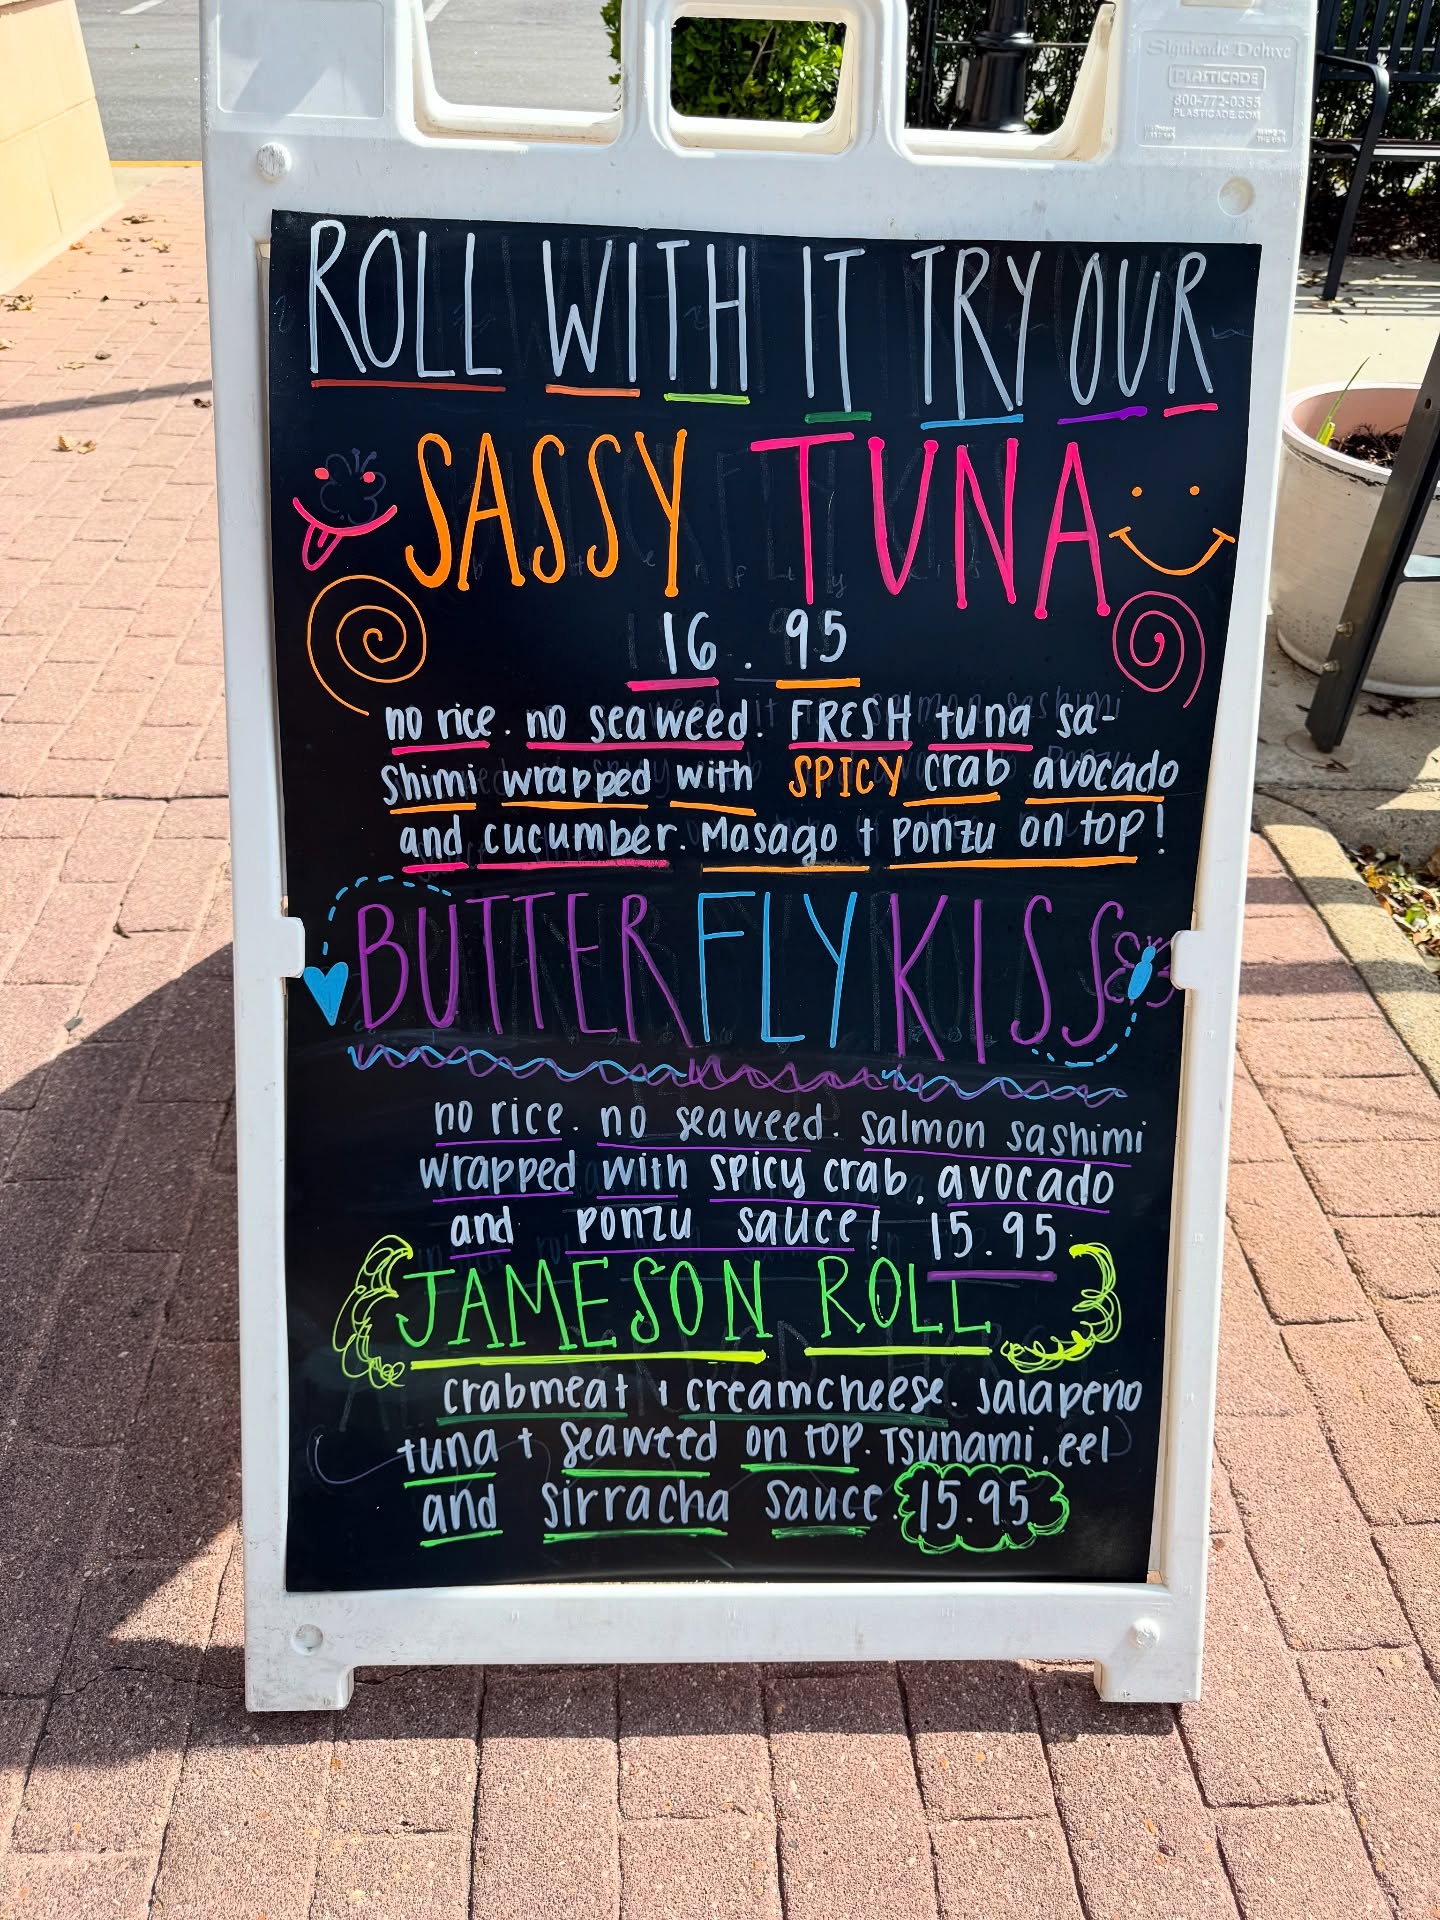 Signicade Deluxe
PLASTICADE
800-772-0355
PLASTICADE.COM
ROLL WITH IT TRY OUR
SASSY TUNA
16.95
no rice. no seaweed. FRESH tuna sa-
shimi wrapped with SPICY crab avocado
and cucumber. Masago + Ponzu on top!
BUTTERFLY KISS
no rice. no seaweed. salmon sashimi
wrapped with spicy crab, avocado
and ponzu sauce! 15.95
JAMESON ROLL
crabmeat + creamcheese. Jalapeno
tuna + seaweed on top. Tsunami, eel
and sirracha sauce. 15.95